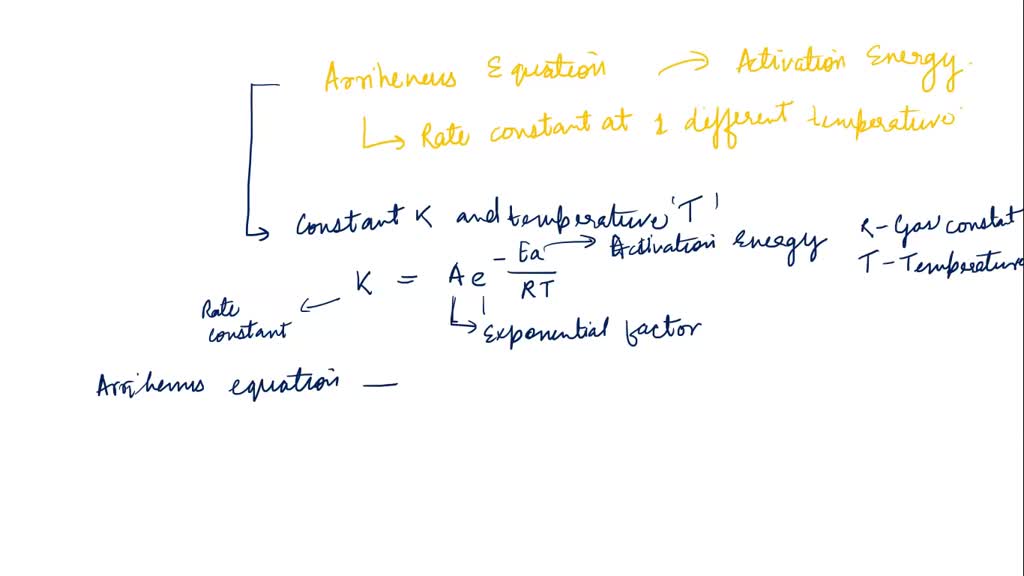 Arriheneus Equation → Activation Energy.
↳ Rate constant at 2 different temperature
Constant K and temperature 'T'
K = Ae^-Ea/RT → Activation Energy
R-Gas constat
T-Temperature
Rate constant
↳ Exponential factor
Arrihenus equation —